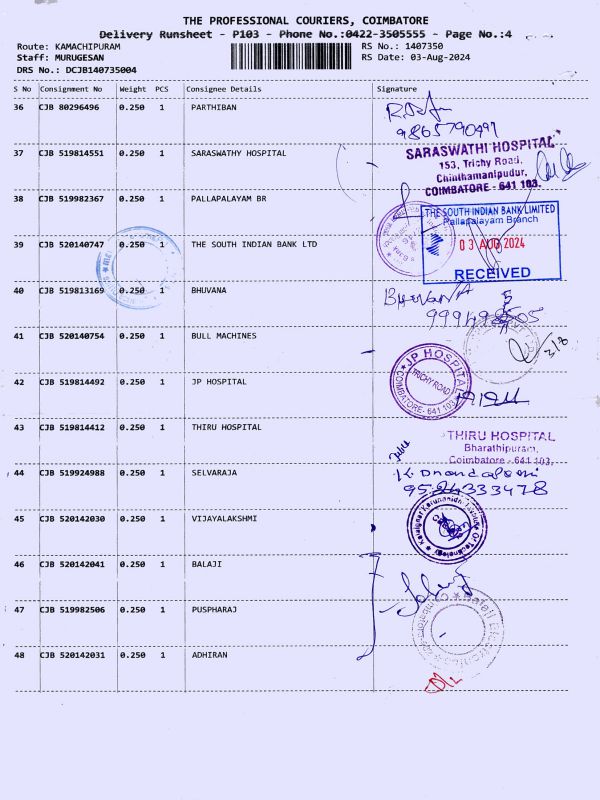 THE PROFESSIONAL COURIERS, COIMBATORE
Delivery Runsheet - P103 - Phone No.:0422-3505555 - Page No.:4
Route: KAMACHIPURAM RS No.: 1407350
Staff: MURUGESAN RS Date: 03-Aug-2024
DRS No.: DCJB140735004
S No Consignment No Weight PCS Consignee Details Signature
36 CJB 80296496 0.250 1 PARTHIBAN
9865790497
37 CJB 519814551 0.250 1 SARASWATHY HOSPITAL
SARASWATHI HOSPITAL
153, Trichy Road,
Chinthamanipudur,
COIMBATORE - 641 103.
38 CJB 519982367 0.250 1 PALLAPALAYAM BR
THE SOUTH INDIAN BANK LIMITED
Pallapalayam Branch
03 AUG 2024
RECEIVED
39 CJB 520140747 0.250 1 THE SOUTH INDIAN BANK LTD
40 CJB 519813169 0.250 1 BHUVANA
BHUVANA
41 CJB 520140754 0.250 1 BULL MACHINES
3/8
42 CJB 519814492 0.250 1 JP HOSPITAL
JP HOSPITAL
TRICHY ROAD
COIMBATORE - 641 103
43 CJB 519814412 0.250 1 THIRU HOSPITAL
THIRU HOSPITAL
Bharathipuram,
Coimbatore - 641 103.
44 CJB 519924988 0.250 1 SELVARAJA
9524333478
45 CJB 520142030 0.250 1 VIJAYALAKSHMI
Kalaignar Karunanidhi Institute Of Technology
46 CJB 520142041 0.250 1 BALAJI
47 CJB 519982506 0.250 1 PUSPHARAJ
48 CJB 520142031 0.250 1 ADHIRAN